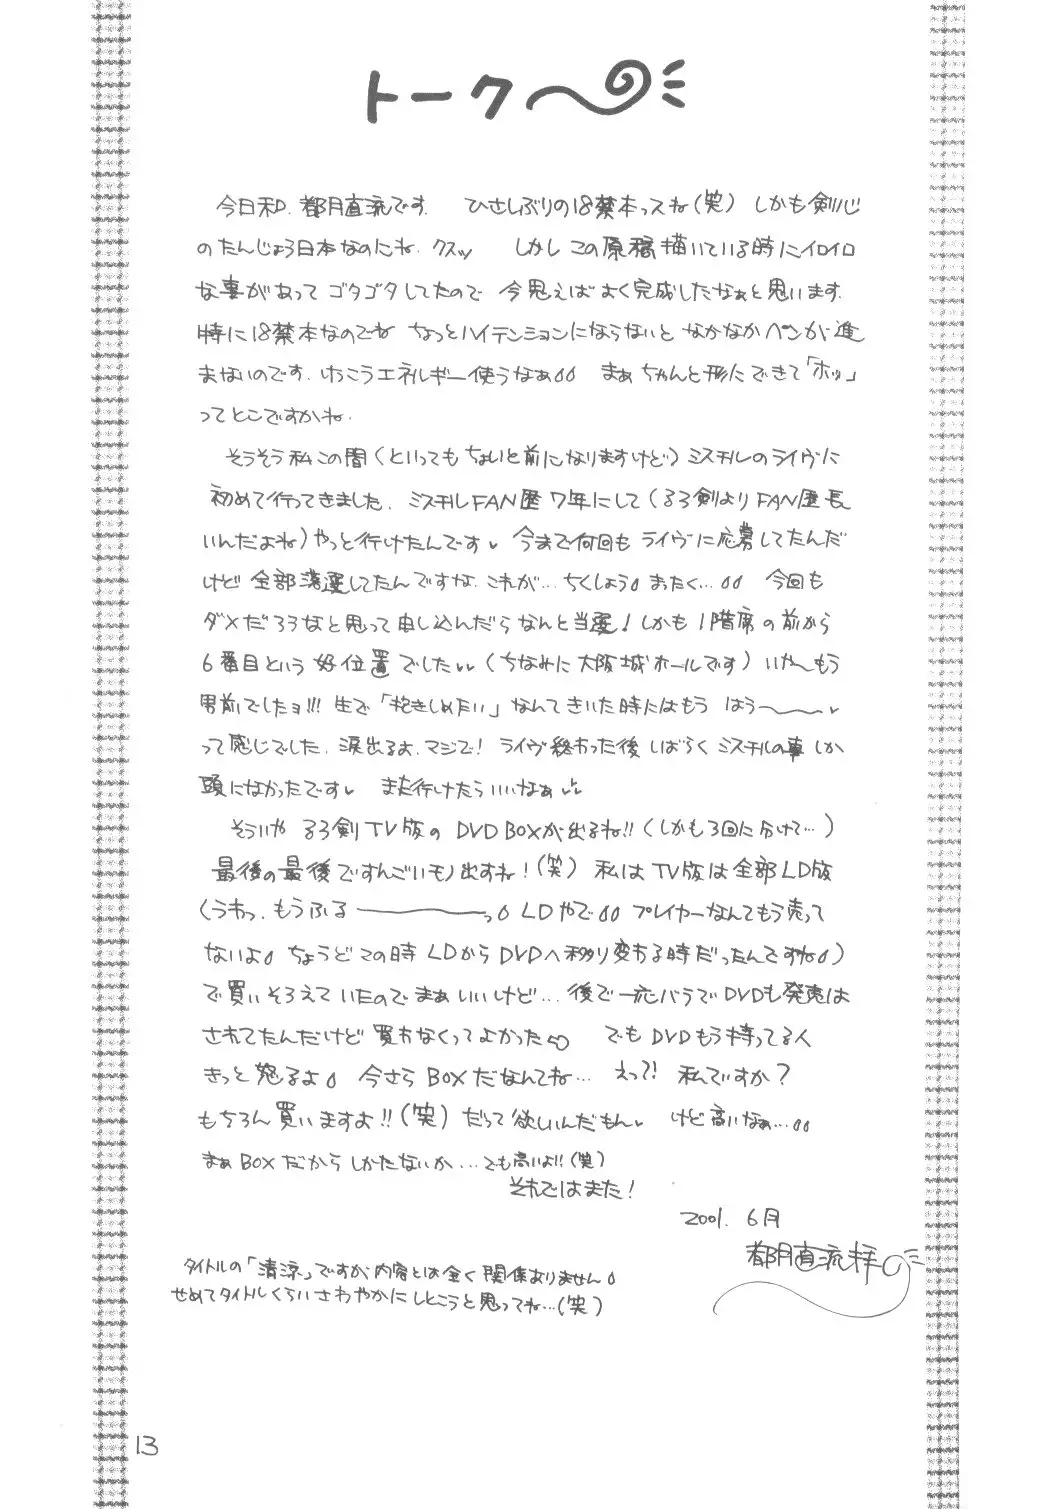 トーク
今日和。都月直流です。 ひさしぶりの18禁本っスね(笑) しかも剣心
のたんじょう日本なのにね。クスッ しかしこの原稿描いている時にイロイロ
な事があって ゴタゴタしてたので 今思えば よく完成したなぁと思います。
特に18禁本なのでね ちょっとハイテンションにならないと なかなかペンが進
まないのです。けっこうエネルギー使うなぁ まぁちゃんと形にできて「ホッ」
ってとこですかね。
そうそう私この間(といってもちょいと前になりますけど)ミスチルのライヴに
初めて行ってきました。ミスチルFAN歴7年にして(るろ剣よりFAN歴長
いんだよね)やっと行けたんです♥ 今まで何回も ライヴに応募してたんだ
けど 全部落選してたんですな。これが…ちくしょう まったく… 今回も
ダメだろうなと思って申し込んだらなんと当選!しかも1階席の前から
6番目という好位置でした♥(ちなみに大阪城ホールです)いや〜もう
男前でしたョ!!!生で「抱きしめたい」なんてきいた時にはもう はう〜〜♥
って感じでした。涙出るよ、マジで!ライヴ終わった後しばらくミスチルの事しか
頭になかったです♥ また行けたらいいなぁ♥
そういや るろ剣TV版の DVD BOXが出るね!!(しかも3回に分けて…)
最後の最後ですんごいモノ出すね!(笑) 私はTV版は全部LD版
(うわっ、もうふる———っ LDやで プレイヤーなんてもう売って
ないよ ちょうどこの時LDからDVDへ移り変わる時だったんですね)
で買いそろえていたのでまぁいいけど…後で一応バラでDVDも発売は
されてたんだけど買わなくってよかった でもDVDもう持ってる人
きっと怒るよ 今さらBOXだなんてね… えっ?!私ですか?
もちろん買いますよ!!(笑)だって欲しいんだもん♥ けど高いなぁ…
まぁBOXだからしかたないか…でも高いよ!!(笑)
それではまた!
2001. 6月
都月直流拝
タイトルの「清涼」ですが内容とは全く関係ありません
せめてタイトルくらいさわやかにしとこうと思ってね…(笑)
13